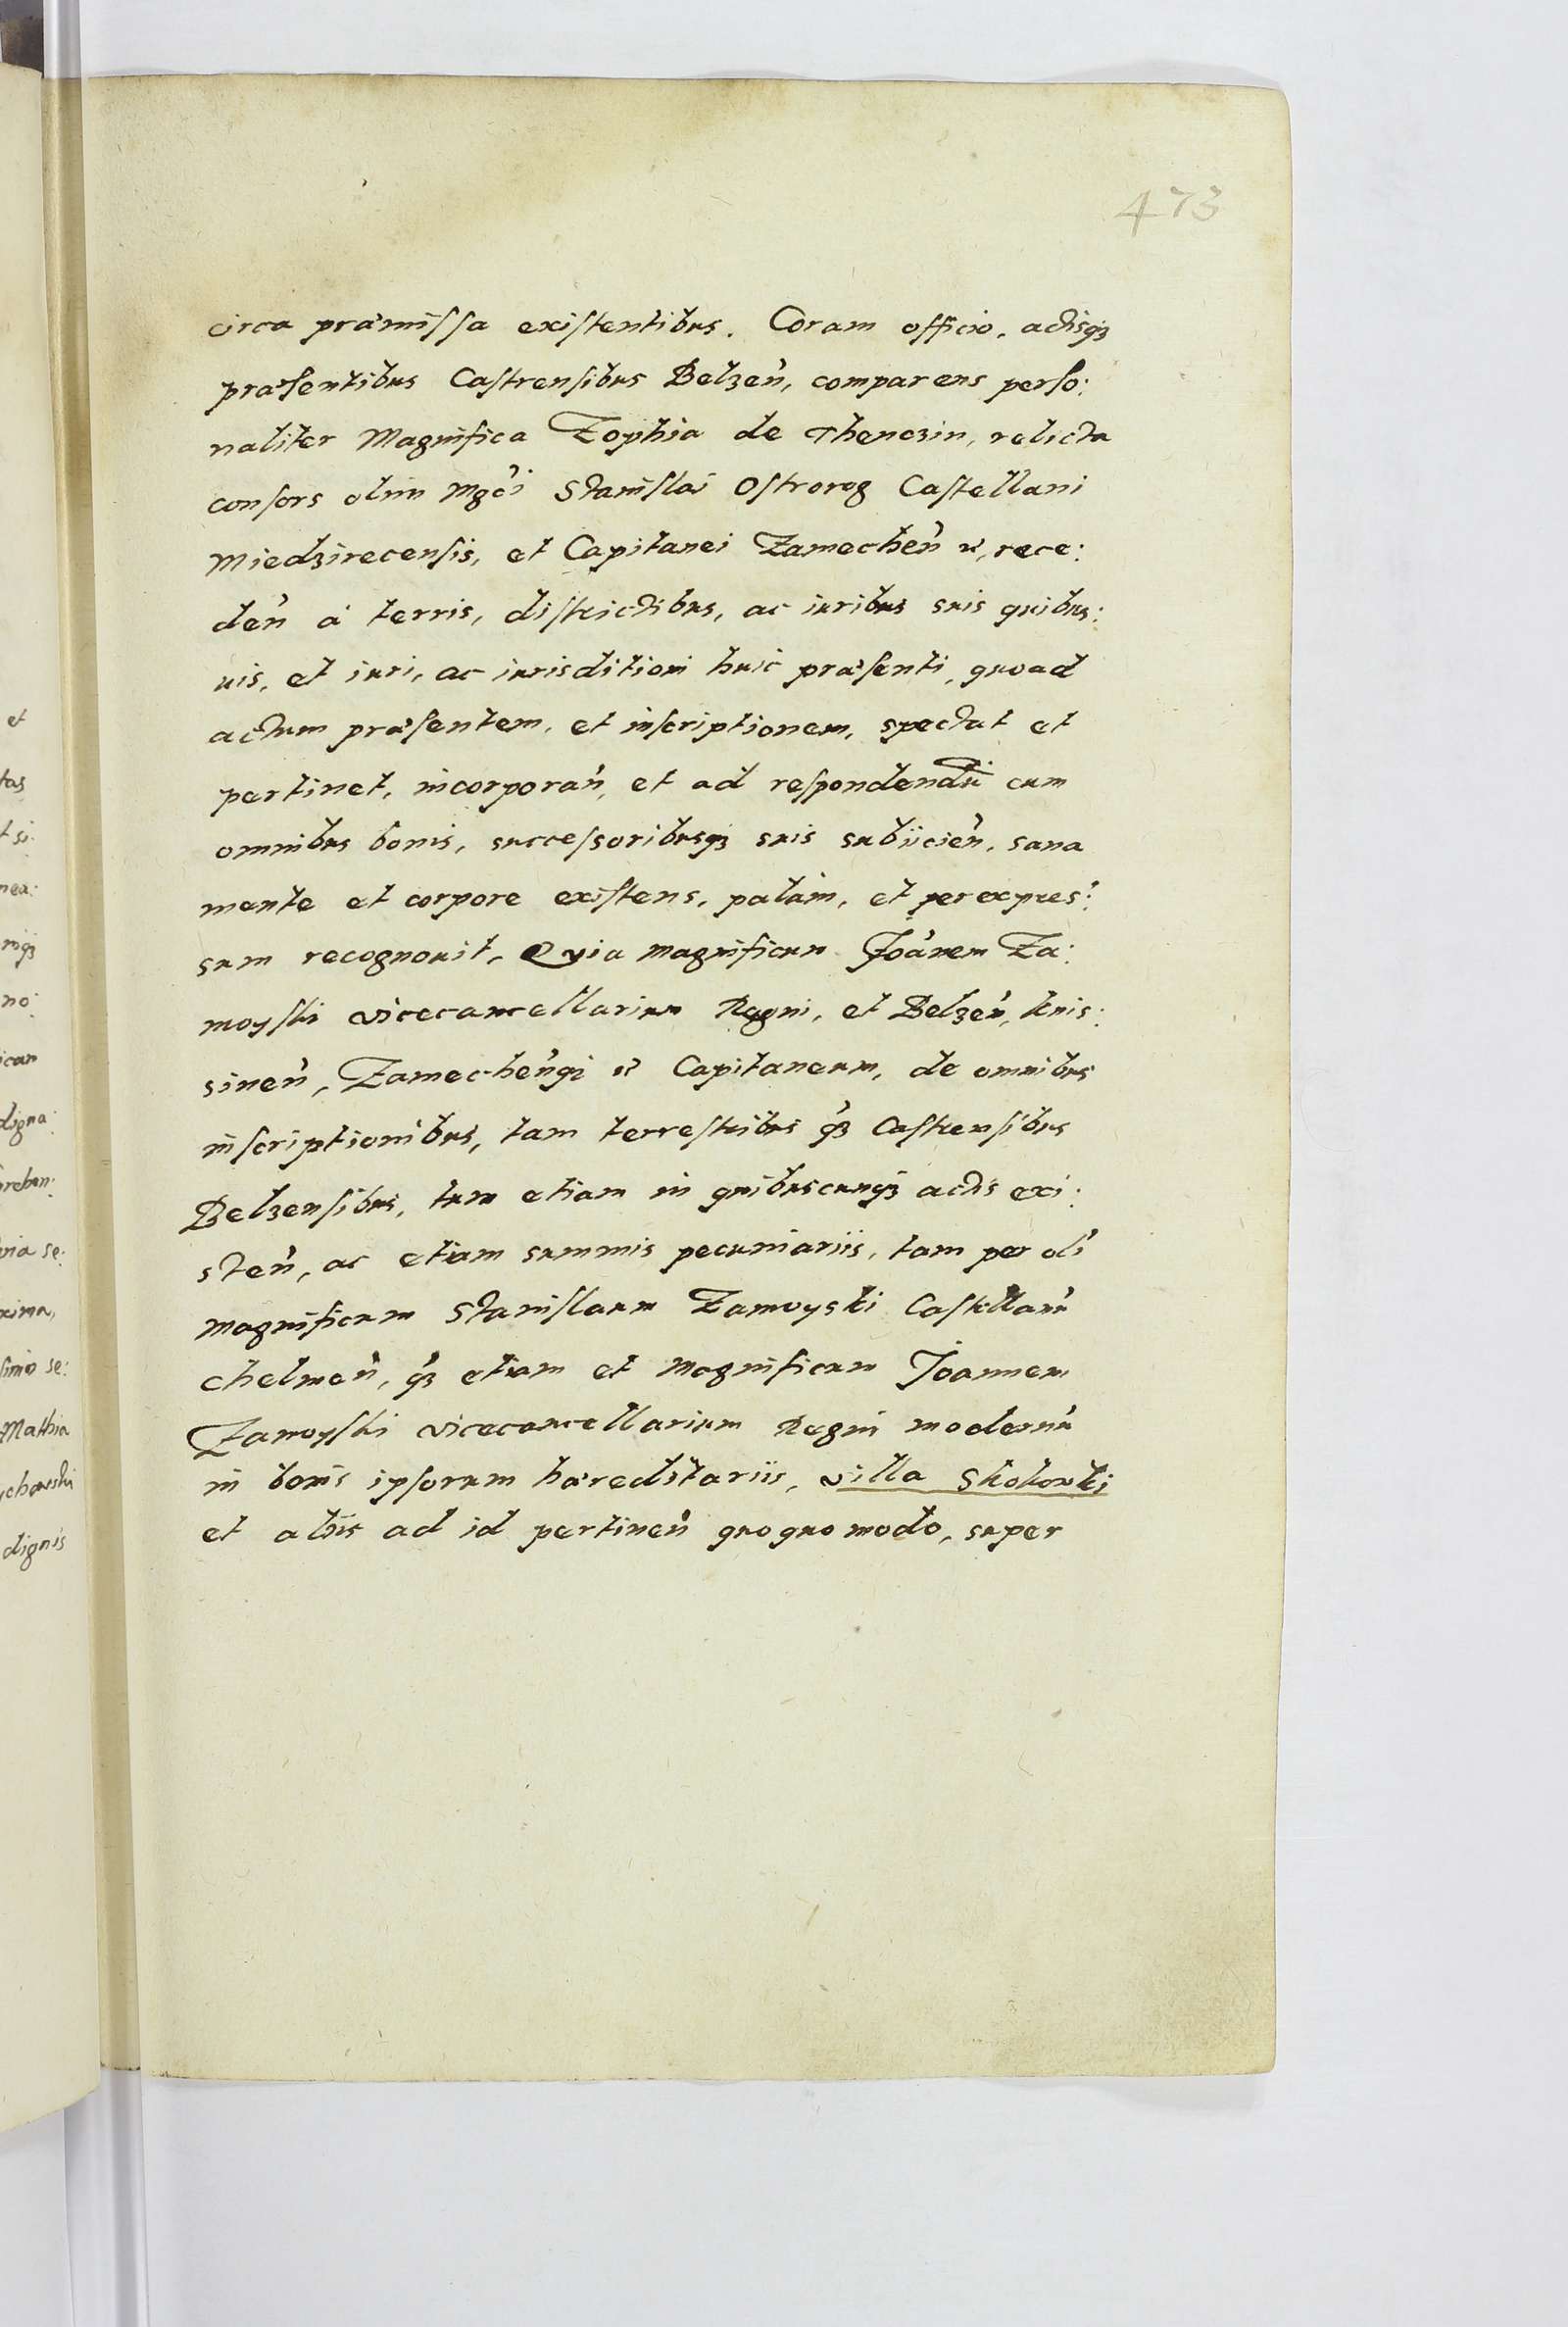 473
circa præmissa existentibus. Coram officio, actisqȝ
præsentibus Castrensibus Belzeń, comparens perso:
naliter Magnifica Zophia de Thenczin, relicta
consors olim Mgci Stanislai Ostrorog Castellani
Miedzirecensis, et Capitanei Zamecheń &, rece:
deń à terris, districtibus, ac iuribus suis quibus:
uis, et iuri, ac iurisditioni huic præsenti, quoad
actum præsentem, et inscriptionem, spectat et
pertinet, incorporań, et ad respondendū cum
omnibus bonis, successoribusqȝ suis subiicień, sana
mente et corpore existens, palàm, et per expres:
sum recognouit, Quia Magnificum Joānem Za:
moyski vicecancellarium Regni, et Belzeń, knis:
sineń, Zamecheńqȝ & Capitaneum, de omnibus
inscriptionibus, tam terrestribus qȝ Castrensibus
Belzensibus, tum etiam in quibuscunqȝ actis exi:
steń, ac etiam summis pecuniariis, tam per oli
Magnificum Stanislaum Zamoyski Castellanū
Chelmeń, qȝ etiam et Magnificum Joannem
Zamoyski vicecancellarium Regni modernū
in bonis ipsorum hæreditariis, villa Skokowki
et aliis ad id pertineń quoquo modo, super
et
tas
t si:
nea:
riqȝ
no:
icam
digna:
se:
xima,
se:
Mathia
dignis